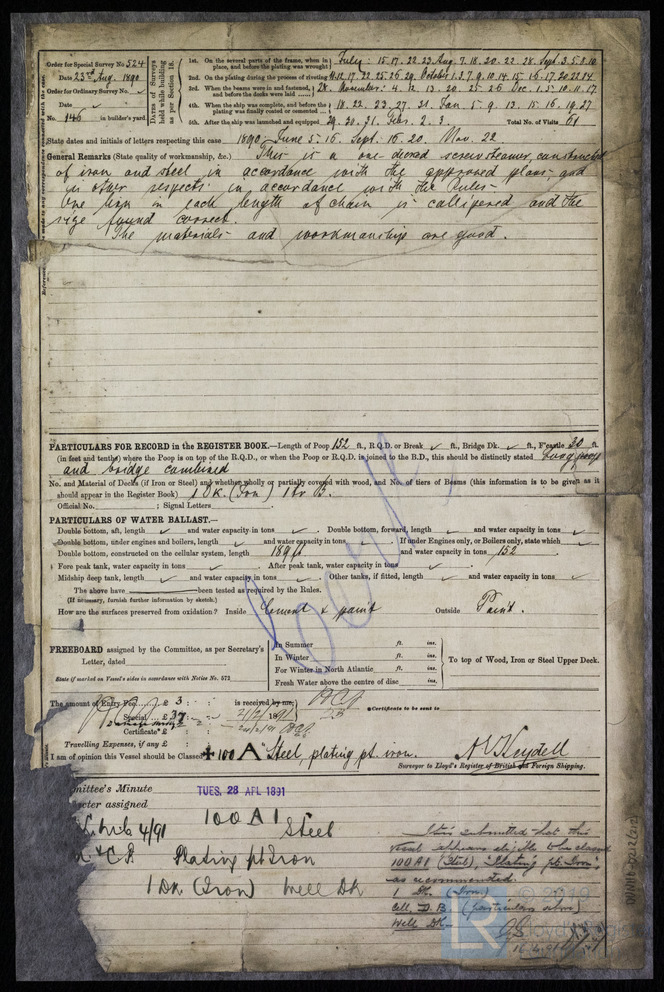 Order for Special Survey No. 524
Date 23rd Aug. 1890
Order for Ordinary Survey No.
Date
No. 146 in builder's yard.
Dates of Surveys held while building as per Section 18.
1st. On the several parts of the frame, when in place, and before the plating was wrought July: 15.17.22.23. Aug. 7.18.20.22.28. Sept. 3.5.8.10
2nd. On the plating during the process of riveting 11.12.17.22.25.26.29. October 1.3.7.9.10.14.15.16.17.20.22.24.
3rd. When the beams were in and fastened, and before the decks were laid 28. November: 4.12.13.20.25.26. Dec. 1.5.10.11.17
4th. When the ship was complete, and before the plating was finally coated or cemented 18.22.23.27.31. Jan. 5.9.13.15.16.19.27
5th. After the ship was launched and equipped 29.30.31. Feb. 2.3. Total No. of Visits 61
State dates and initials of letters respecting this case 1890, June 5.16. Sept. 16.20. Nov. 22
General Remarks (State quality of workmanship, &c.) This is a one-decked screw steamer, constructed
of iron and steel in accordance with the approved plans and
in other respects in accordance with the Rules.
One link in each length of chain is callipered and the
size found correct.
The materials and workmanship are good.
PARTICULARS FOR RECORD in the REGISTER BOOK.—Length of Poop 152 ft., R.Q.D. or Break ft., Bridge Dk. ft., F'castle 30 ft.
(in feet and tenths) where the Poop is on top of the R.Q.D., or when the Poop or R.Q.D. is joined to the B.D., this should be distinctly stated Long poop
and bridge combined
No. and Material of Decks (if Iron or Steel) and whether wholly or partially covered with wood, and No. of tiers of Beams (this information is to be given as it
should appear in the Register Book) 1 Dk. (Iron) 1 tr B.
Official No. ; Signal Letters
PARTICULARS OF WATER BALLAST.—
Double bottom, aft, length and water capacity in tons . Double bottom, forward, length and water capacity in tons
Double bottom, under engines and boilers, length and water capacity in tons . If under Engines only, or Boilers only, state which
Double bottom, constructed on the cellular system, length 189 ft and water capacity in tons 152
Fore peak tank, water capacity in tons . After peak tank, water capacity in tons
Midship deep tank, length and water capacity in tons . Other tanks, if fitted, length and water capacity in tons
The above have been tested as required by the Rules.
(If necessary, furnish further information by sketch.)
How are the surfaces preserved from oxidation? Inside Cement & paint Outside Paint.
FREEBOARD assigned by the Committee, as per Secretary's
Letter, dated
State if marked on Vessel's sides in accordance with Notice No. 572
In Summer ft. ins.
In Winter ft. ins.
For Winter in North Atlantic ft. ins.
Fresh Water above the centre of disc ins.
To top of Wood, Iron or Steel Upper Deck.
The amount of Entry Fee £ 3 : : is received by me,
Special £ 37 1891
Certificate* £
*Certificate to be sent to
Travelling Expenses, if any £
I am of opinion this Vessel should be Classed ✠ 100 A Steel, plating pt. iron. A V Keydell
Surveyor to Lloyd's Register of British and Foreign Shipping.
Committee's Minute TUES. 28 APL 1891
Character assigned 100 A 1 Steel
4/91
& C.P. Plating pt Iron
1 Dk (Iron) Well Dk
It is submitted that this
vessel appears eligible to be classed
100A1 (Steel), "Plating pt. Iron",
as recommended.
1 Dk. (Iron.)
Cell. D.B. (particulars above)
Well Dk.
16.4.91
LR
© 2019